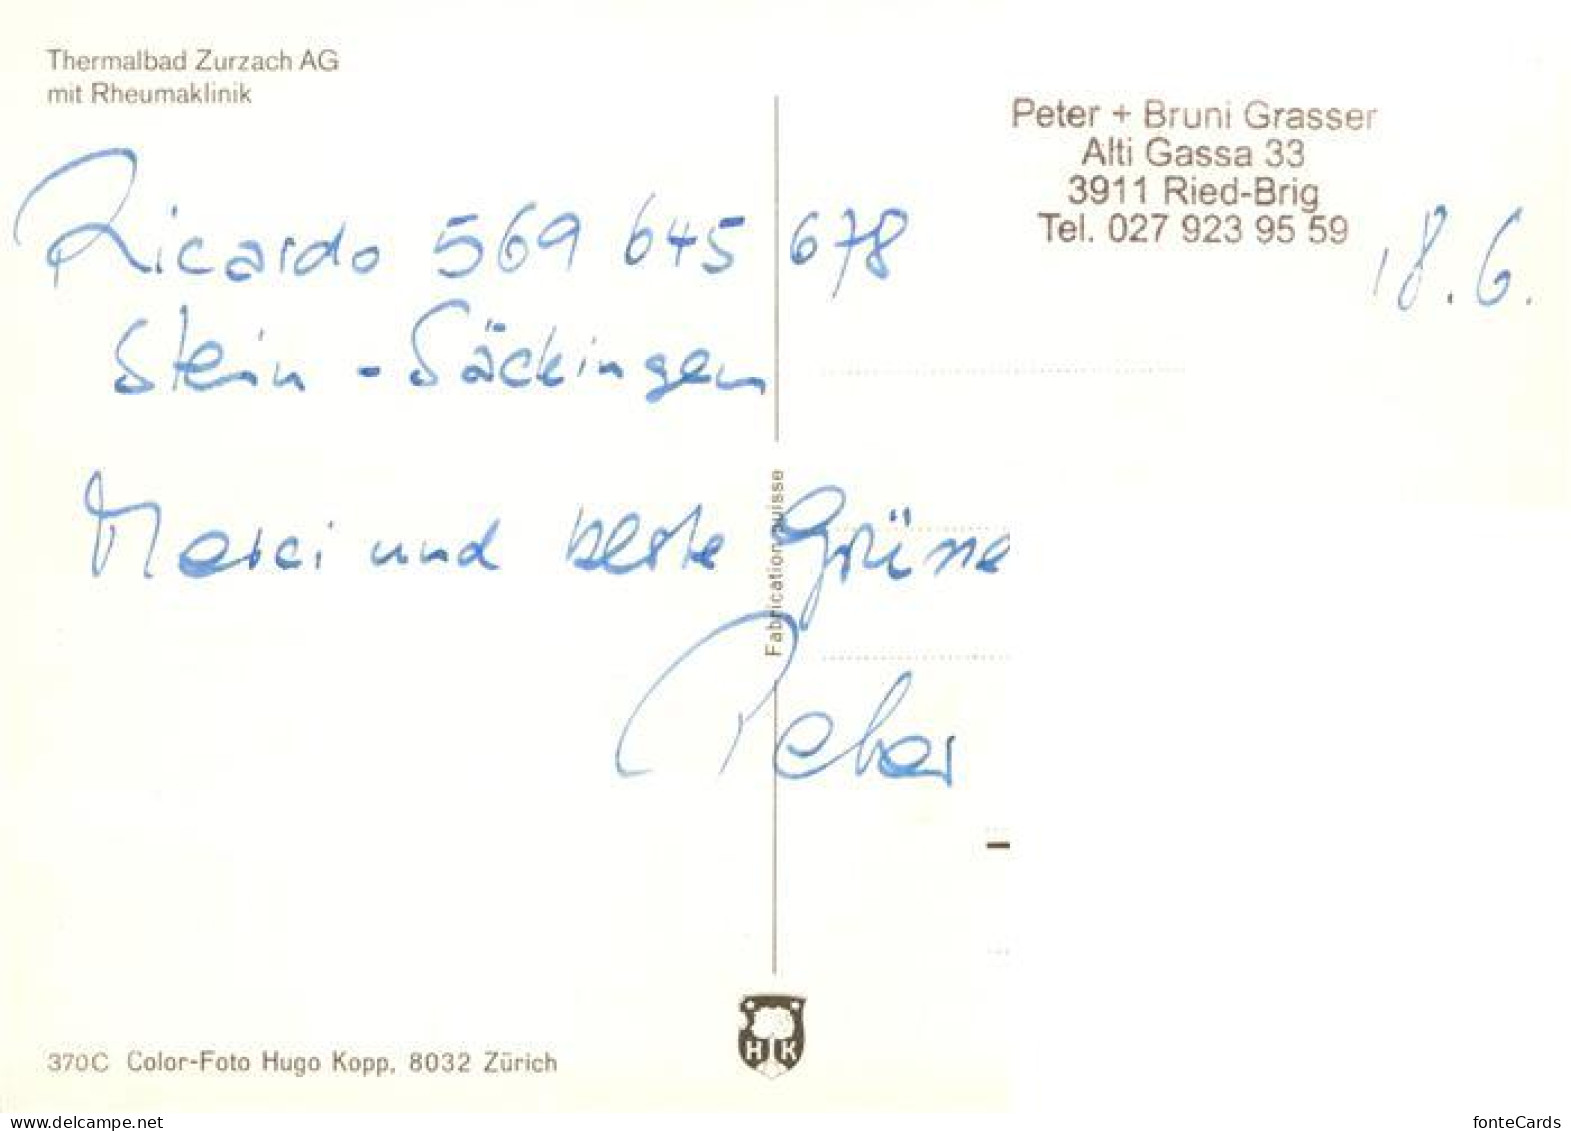 Thermalbad Zurzach AG
mit Rheumaklinik
Peter + Bruni Grasser
Alti Gassa 33
3911 Ried-Brig
Tel. 027 923 95 59
18.6.
Ricardo 569 645 678
Stein - Säckingen
Merci und beste Grüsse
Peter
Fabrication suisse
HK
370C Color-Foto Hugo Kopp, 8032 Zürich
www.delcampe.net
fonteCards